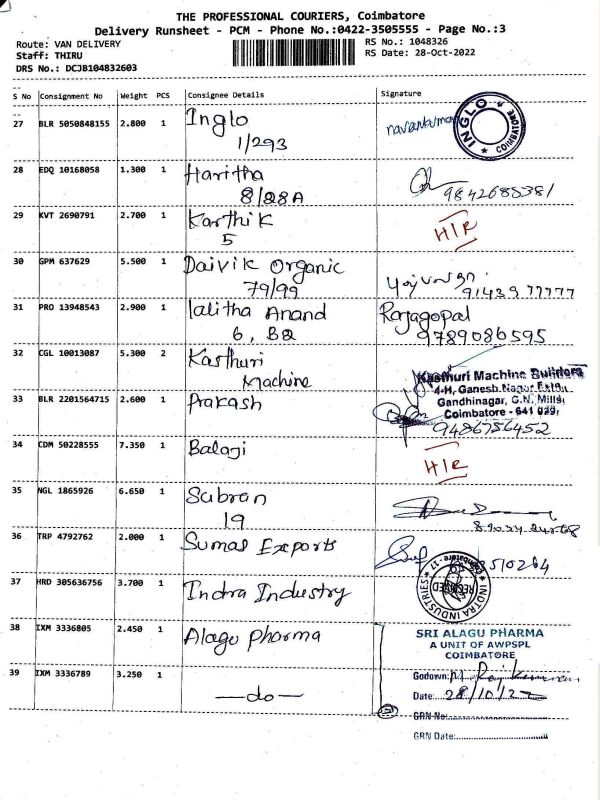 THE PROFESSIONAL COURIERS, Coimbatore
Delivery Runsheet - PCM - Phone No.:0422-3505555 - Page No.:3
Route: VAN DELIVERY
RS No.: 1048326
Staff: THIRU
RS Date: 28-Oct-2022
DRS No.: DCJB104832603
S No Consignment No Weight PCS Consignee Details Signature
27 BLR 5050848155 2.800 1 Inglo
1/293
INGLO COIMBATORE
28 EDQ 10168058 1.300 1 Haritha
8/28A
9842685381
29 KVT 2690791 2.700 1 Karthik H/R
5
30 GPM 637629 5.500 1 Daivik Organic
79/99
91439 77777
31 PRO 13948543 2.900 1 lalitha Anand Rajagopal
6, B2 9789086595
32 CGL 10013087 5.300 2 Kasthuri
Machine
Kasthuri Machine Builders
4-H, Ganesh Nagar Extn.
Gandhinagar, G.N. Mills,
Coimbatore - 641 029.
33 BLR 2201564715 2.600 1 Prakash
9486756452
34 CDM 50228555 7.350 1 Balaji H/R
35 NGL 1865926 6.650 1 Subran
19
36 TRP 4792762 2.000 1 Sumas Exports
37 HRD 305636756 3.700 1 Indra Industry
INDTRA INDUSTRIES Coimbatore - 17
RECEIVED
38 IXM 3336805 2.450 1 Alagu pharma
SRI ALAGU PHARMA
A UNIT OF AWPSPL
COIMBATORE
39 IXM 3336789 3.250 1 —do—
Godown:
Date: 28/10/22
GRN No:
GRN Date: